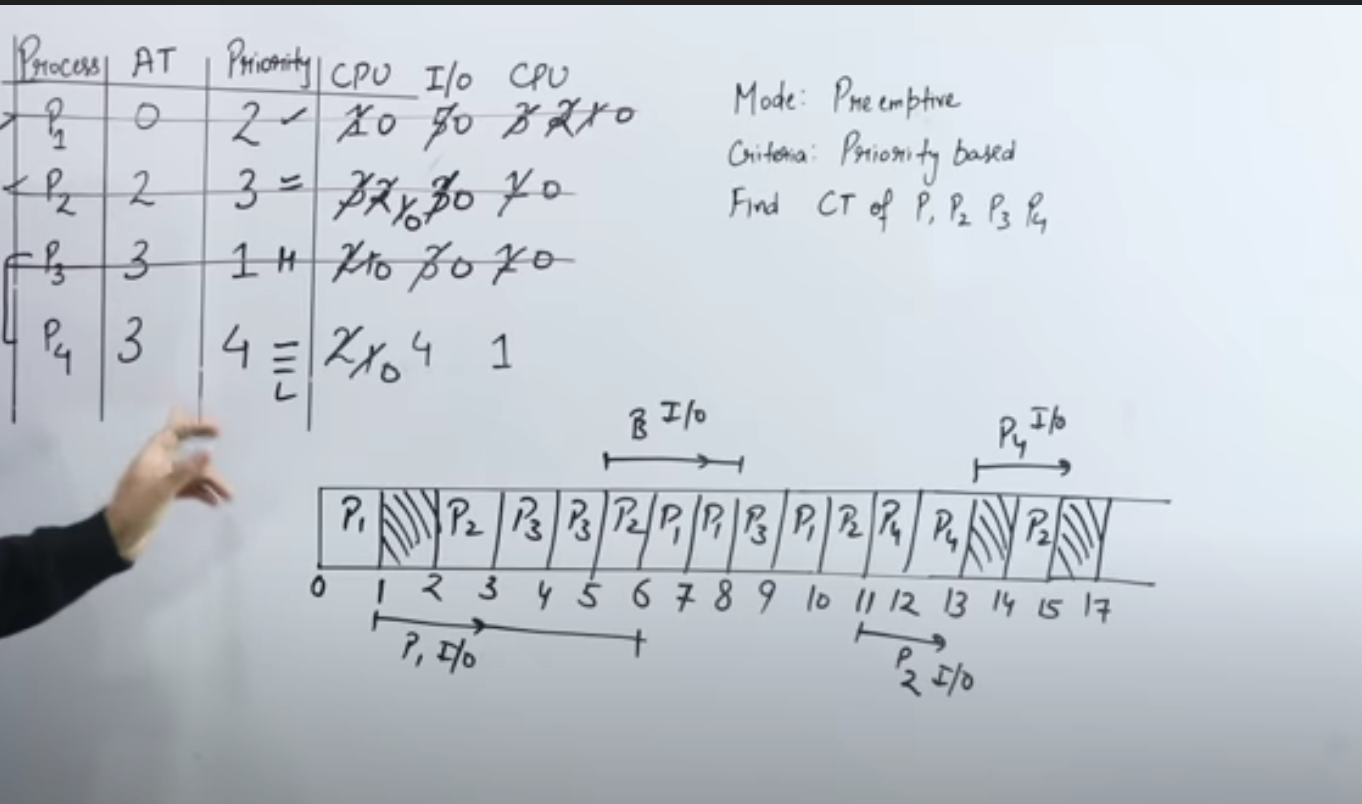 Process AT Priority CPU I/O CPU
P1 0 2 ✓ 1 0 5 0 3 2 1 0
P2 2 3 = 3 2 1 0 3 0 1 0
P3 3 1 H 2 1 0 3 0 1 0
P4 3 4 ≡ 2 1 0 4 1
L
Mode: Preemptive
Criteria: Priority based
Find CT of P1 P2 P3 P4
P3 I/O P4 I/O
P1 P2 P3 P3 P2 P1 P1 P3 P1 P2 P4 P4 P2
0 1 2 3 4 5 6 7 8 9 10 11 12 13 14 15 17
P1 I/O P2 I/O